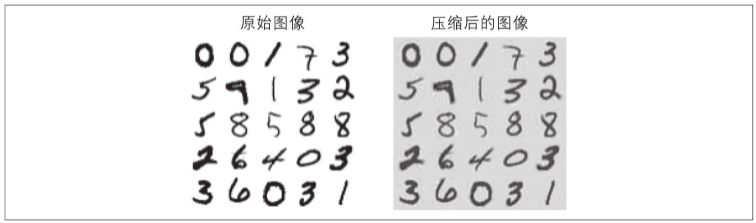 原始图像 压缩后的图像
0 0 1 7 3 0 0 1 7 3
5 9 1 3 2 5 9 1 3 2
5 8 5 8 8 5 8 5 8 8
2 6 4 0 3 2 6 4 0 3
3 6 0 3 1 3 6 0 3 1